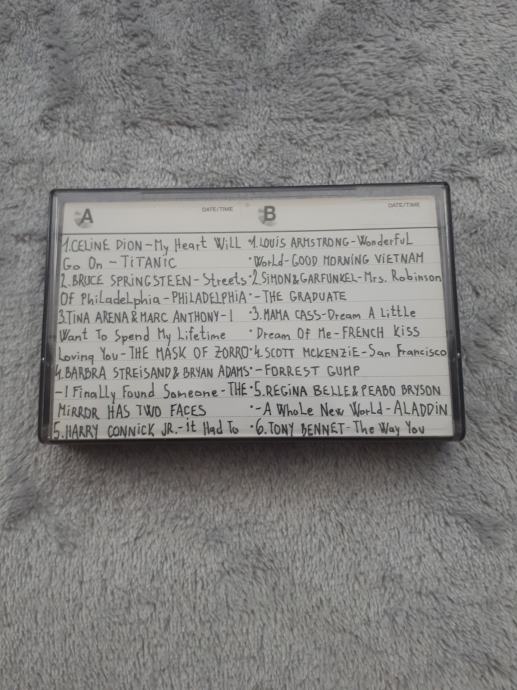 A DATE/TIME
1.CELINE DION-My Heart Will
Go On - TITANIC
2.BRUCE SPRINGSTEEN-Streets
Of Philadelphia-PHILADELPHIA
3.TINA ARENA & MARC ANTHONY-I
Want To Spend My Lifetime
Loving You-THE MASK OF ZORRO
4.BARBRA STREISAND & BRYAN ADAMS
-I Finally Found Someone-THE
MIRROR HAS TWO FACES
5.HARRY CONNICK JR.-It Had To
B DATE/TIME
1.LOUIS ARMSTRONG-Wonderful
World-GOOD MORNING VIETNAM
2.SIMON&GARFUNKEL-Mrs. Robinson
-THE GRADUATE
3.MAMA CASS-Dream A Little
Dream Of Me-FRENCH KISS
4.SCOTT MCKENZIE-San Francisco
-FORREST GUMP
5.REGINA BELLE&PEABO BRYSON
-A Whole New World-ALADDIN
6.TONY BENNET-The Way You